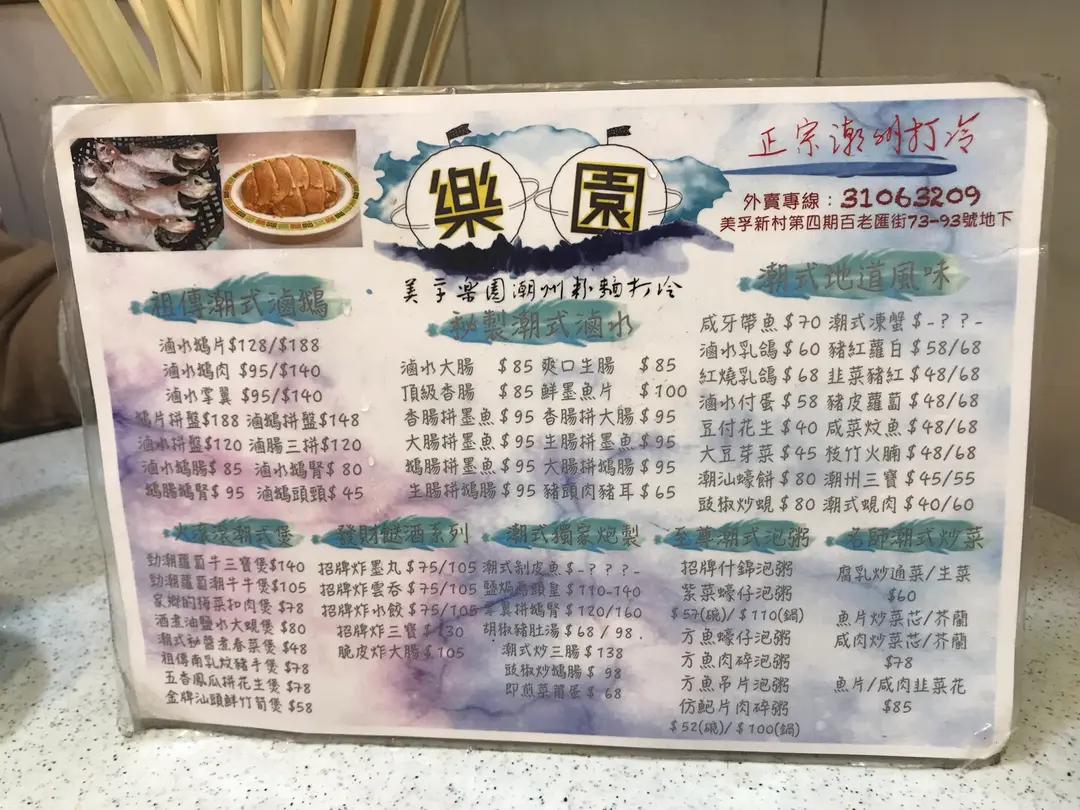 樂園
正宗潮州打冷
外賣專線：31063209
美孚新村第四期百老匯街73-93號地下
美孚樂園潮州粉麵打冷
祖傳潮式滷鵝
滷水鵝片$128/$188
滷水鵝肉 $95/$140
滷水掌翼 $95/$140
鵝片拼盤$188 滷鵝拼盤$148
滷水拼盤$120 滷腸三拼$120
滷水鵝腸$ 85 滷水鵝腎$ 80
鵝腸鵝腎$ 95 滷鵝頭頸$ 45
秘製潮式滷水
滷水大腸 $ 85 爽口生腸 $ 85
頂級香腸 $ 85 鮮墨魚片 $ 100
香腸拼墨魚 $ 95 香腸拼大腸 $ 95
大腸拼墨魚 $ 95 生腸拼墨魚 $ 95
鵝腸拼墨魚 $ 95 大腸拼鵝腸 $ 95
生腸拼鵝腸 $ 95 豬頭肉豬耳 $ 65
潮式地道風味
咸牙帶魚 $ 70 潮式凍蟹 $ - ? ? -
滷水乳鴿 $ 60 豬紅蘿白 $ 58/68
紅燒乳鴿 $ 68 韭菜豬紅 $ 48/68
滷水付蛋 $ 58 豬皮蘿蔔 $ 48/68
豆付花生 $ 40 咸菜炆魚 $ 48/68
大豆芽菜 $ 45 枝竹火腩 $ 48/68
潮汕蠔餅 $ 80 潮州三寶 $ 45/55
豉椒炒蜆 $ 80 潮式蜆肉 $ 40/60
火滾滾潮式煲
勁潮蘿蔔牛三寶煲$140
勁潮蘿蔔潮牛牛煲$105
家鄉的梅菜扣肉煲 $78
酒煮油鹽水大蜆煲 $80
潮式秘醬煮春菜煲 $48
祖傳南乳炆豬手煲 $78
五香鳳瓜拼花生煲 $78
金牌汕頭鮮竹筍煲 $58
發財餸酒系列
招牌炸墨丸 $ 75/105
招牌炸雲吞 $ 75/105
招牌炸水餃 $ 75/105
招牌炸三寶 $ 130
脆皮炸大腸 $ 105
潮式獨家炮製
潮式剝皮魚 $ - ? ? ? -
鹽焗烏頭皇 $ 110-140
掌翼拼鵝腎 $ 120/160
胡椒豬肚湯 $ 68 / 98 .
潮式炒三腸 $ 138
豉椒炒鵝腸 $ 98
即煎菜莆蛋 $ 68
至尊潮式泡粥
招牌什錦泡粥
紫菜蠔仔泡粥
$ 57(碗)/ $ 110(鍋)
方魚蠔仔泡粥
方魚肉碎泡粥
方魚吊片泡粥
仿鮑片肉碎粥
$ 52(碗)/ $ 100(鍋)
名師潮式炒菜
腐乳炒通菜/生菜
$60
魚片炒菜芯/芥蘭
咸肉炒菜芯/芥蘭
$78
魚片/咸肉韭菜花
$85